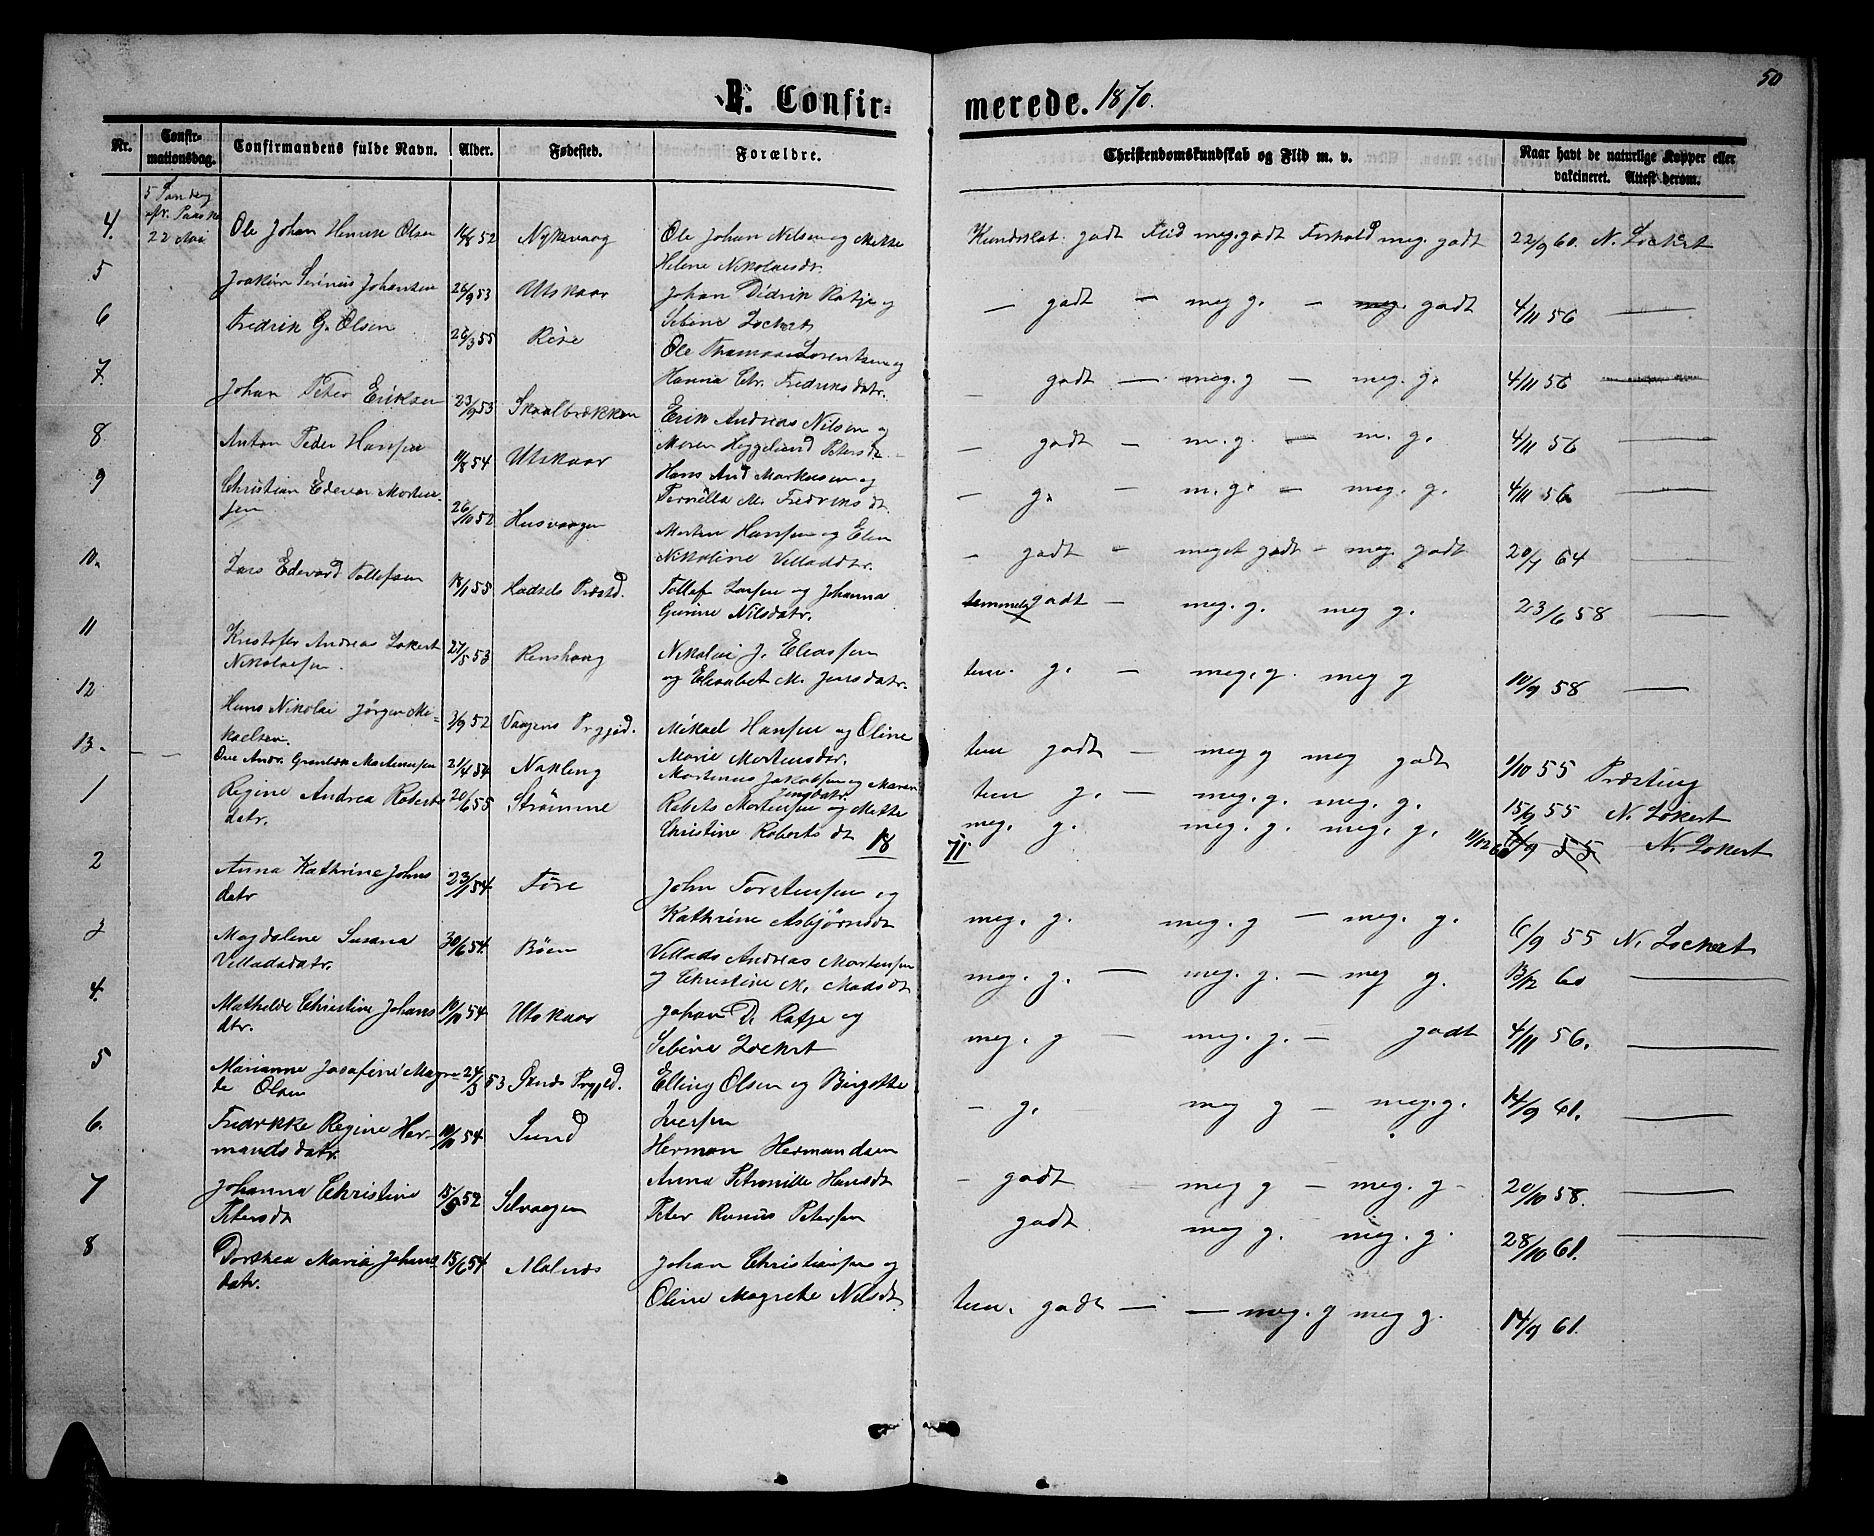 50
B. Confir-
merede. 1870.
Nr.
Confir-
mationsdag.
Confirmandens fulde Navn.
Alder.
Fødested.
Forældre.
Christendomskundskab og Flid m. v.
Naar havt de naturlige Kopper eller
vakcineret. Attest derom.
5 Søndag
efr. Paaske
22 Mai
4. Ole Johan Henrik Olsen 14/8 52 Nykvaag Ole Johan Nilsen og Mette
Helene Nikolaisdtr. Kundskab. godt Flid meg. godt Forhold meg. godt 22/9 60. N. Lockert
5 Joakim Serinus Johansen 26/9 53 Utskaar Johan Didrik Ratje og
Sebine Lockert — godt — meg g. — godt 4/11 56 —
6 Fredrik G. Olsen 26/3 55 Rise Ole Thomas Lorentsen og
Hanna Chr. Fredriksdatr. — godt — meg. g — meg. g. 4/11 56 —
7. Johan Peter Eriksen 23/9 53 Skaalbrekken Erik Andreas Nilsen og
Maren Heggelund Petersdt — godt — m. g. — m. g. 4/11 56 —
8 Anton Peder Hansen 11/8 54 Utskaar Hans And Markusen og
Pernilla M. Fredriksdt. — g. — m. g. — meg. g. 4/11 56 —
9 Christian Edevar Morten-
sen 26/10 52 Husvaagen Morten Hansen og Elen
Nikoline Villadsdtr. — godt — meget godt — meg. godt 20/7 64 —
10. Lars Edevard Tollefsen 18/1 55 Hadsels Præstd. Tollef Larsen og Johanna
Gurine Nilsdatr. temmelig godt — meg. g. meg g. 23/6 58 —
11 Kristofer Andreas Lokert
Nikolaisen. 27/5 53 Renshaug Nikolai J. Eliassen
og Elisabet M. Jensdatr. tem. g. — meg. g. meg g 10/9 58 —
12 Hans Nikolai Jørgen Mi-
kaelsen. 3/9 52 Vaagens Prgjeld. Mikael Hansen og Oline
Marie Mortensdtr. tem godt — meg g meg godt 1/10 55 Præsting
13. — — Ove Andr. Grønbek Mortensen 21/4 54 Nakling Mortenus Jakobsen og Maren
Jensdatr. tem g. — meg. g. meg. g. 15/9 55 N. Lokert
1 Regine Andrea Roberts
datr. 20/6 55 Strømme Roberts Mortensen og Mette
Christine Roberts dt meg. g. meg. g. meg. g. 11/12 60 N. Lokert
18 71
2 Anna Kathrine Johns
datr 23/1 54. Føre John Torstensen og
Kathrine Asbjørnsdt meg. g. meg. g — meg. g. 6/9 55 N. Lockert
3 Magdalene Susana
Villadsdatr. 30/6 54. Bøen Villads Andreas Mortensen
og Christine M. Madsdt meg. g. — meg. g. — meg g. 13/12 60 —
4. Mathilde Christine Johans
dtr. 10/10 54 Utskaar Johan D. Ratje og
Sebine Lockert meg. g — meg. g. — godt 4/11 56. —
5 Marianne Josefine Magre-
te Olsen 24/3 53 Prgjeld. Elling Olsen og Birgitte
Iversen — g. meg g — meg. g. 14/9 61. —
6. Fredrikke Regine Her-
mandsdatr. 10/11 54. Sund Herman Hermandsen
Anna Petronille Hansdt — godt — meg g — meg. g — 20/10 58. —
7 Johanna Christine
Petersdt 15/5 52 Selvaagen Peter Rinus Petersen godt meg g. meg. g. 28/10 61. —
8 Dorthea Maria Johans
datr. 15/6 54 Malnæs Johan Christiansen og
Oline Magrete Nilsdt. tem. godt — — meg. g meg g. 14/9 61.